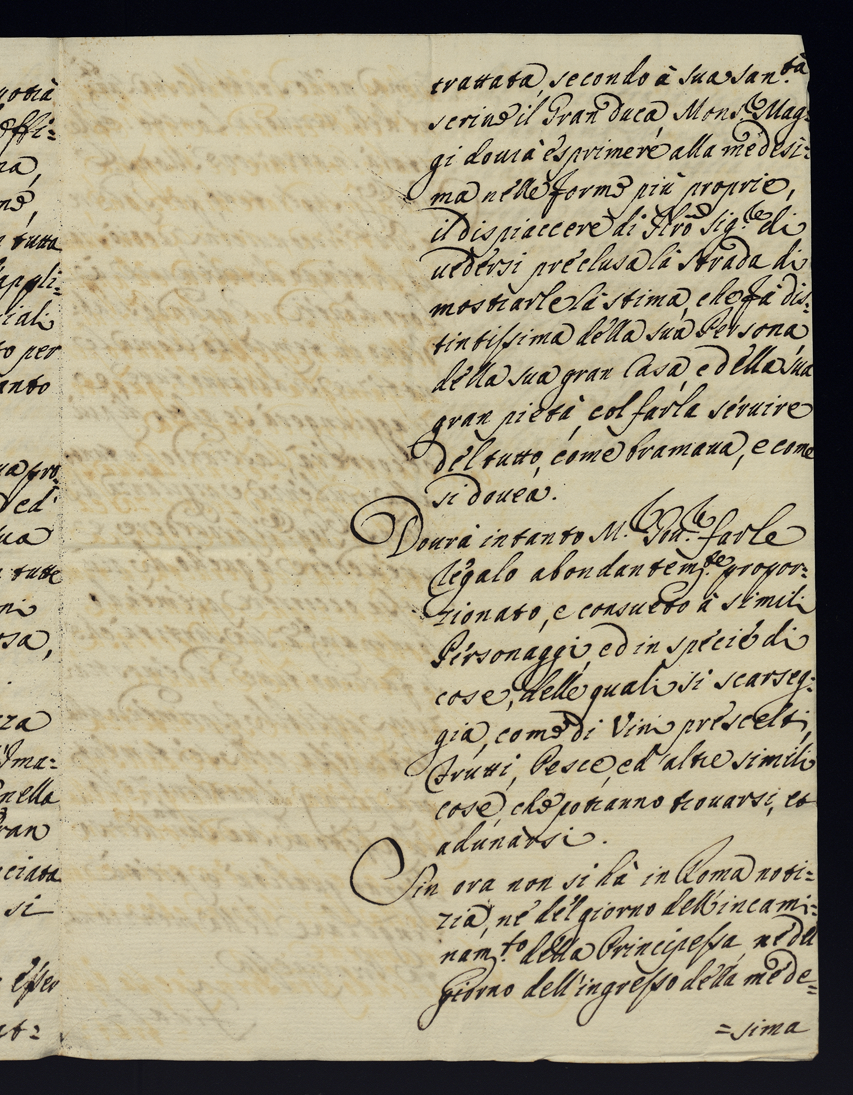 trattata, secondo à sua san.tà
scrive il Gran Duca, Mons.re Mag=
gi dourà esprimere alla medesi=
ma nelle forme più proprie,
il dispiaccere di N͠ro Sig.re di
uedersi preclusa la strada di
mostrarle la stima, che fà dis=
tintissima della sua Persona
della sua gran Casa, e della sua
gran pietà, col farla seruire
del tutto, come bramaua, e come
si douea.
Dourà intanto M.r Gou.re farle
regalo abondantem.te propor=
zionato, e consueto à simili
Personaggi, ed in specie di
cose, delle quali si scarseg=
gia, come di Vini prescelti,
frutti, Pesce, ed altre simili
cose, che potranno trouarsi, et
adunarsi.
Sin ora non si hà in Roma noti=
zia, ne del giorno dell'incami=
nam.to della Principessa, ne del
giorno dell'ingresso della mede=
=sima
uotrà
effi=
na,
me,
tutta
appli=
iali
to per
anto
ua pro
ed
ua
tutte
ni
osa,
zza
Ima=
nella
ran
ciata
si
esser
at=